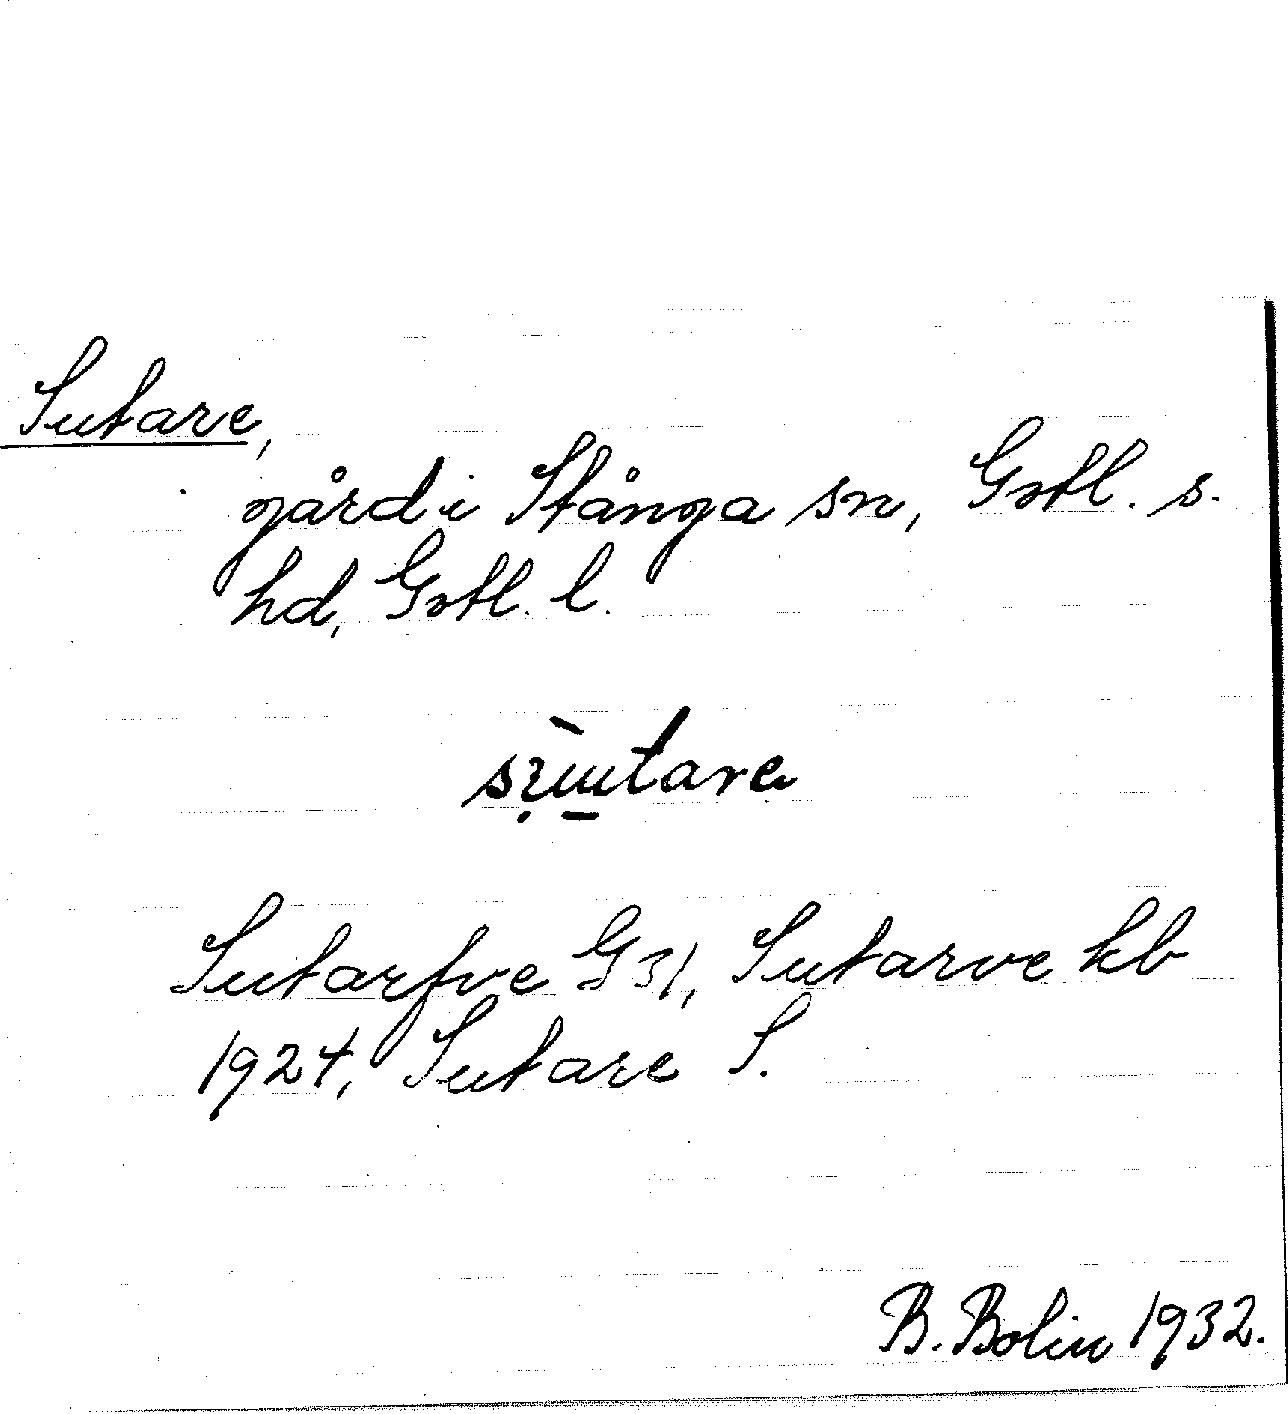 Sutare,
gård i Stånga sn, Gotl. s.
hd, Gotl. l.
Sutarfve G31, Sutarve kb
1924, Sutare S.
B. Bolin 1932.